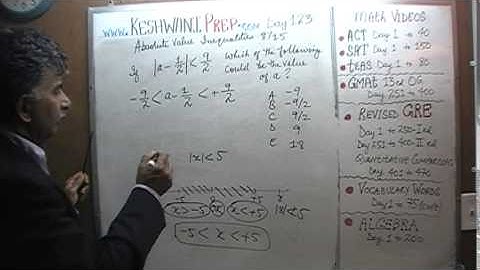 www.KESHWANI PREP.com Day 123
Absolute Value Inequalities 8/25
If |a - 1/2| < 9/2 which of the following
could be the value
of a?
-9/2 < a - 1/2 < +9/2
A -9
B -9/2
C 9/2
D 9
E 18
|x| < 5
x > -5 x < +5 |x| < 5
-5 < x < +5
Math VIDEOS
ACT Day 1 → 40
SAT Day 1 → 150
TEAS Day 1 → 80
GMAT 13rd OG
Day 251 → 400
REVISED GRE
Day 1 → 250 - I ed
Day 251 → 400 - II ed
Quantitative Comparisons
Day 401 → 470
VOCABULARY WORDS
Day 1 → 35
ALGEBRA
Day 1 → 200